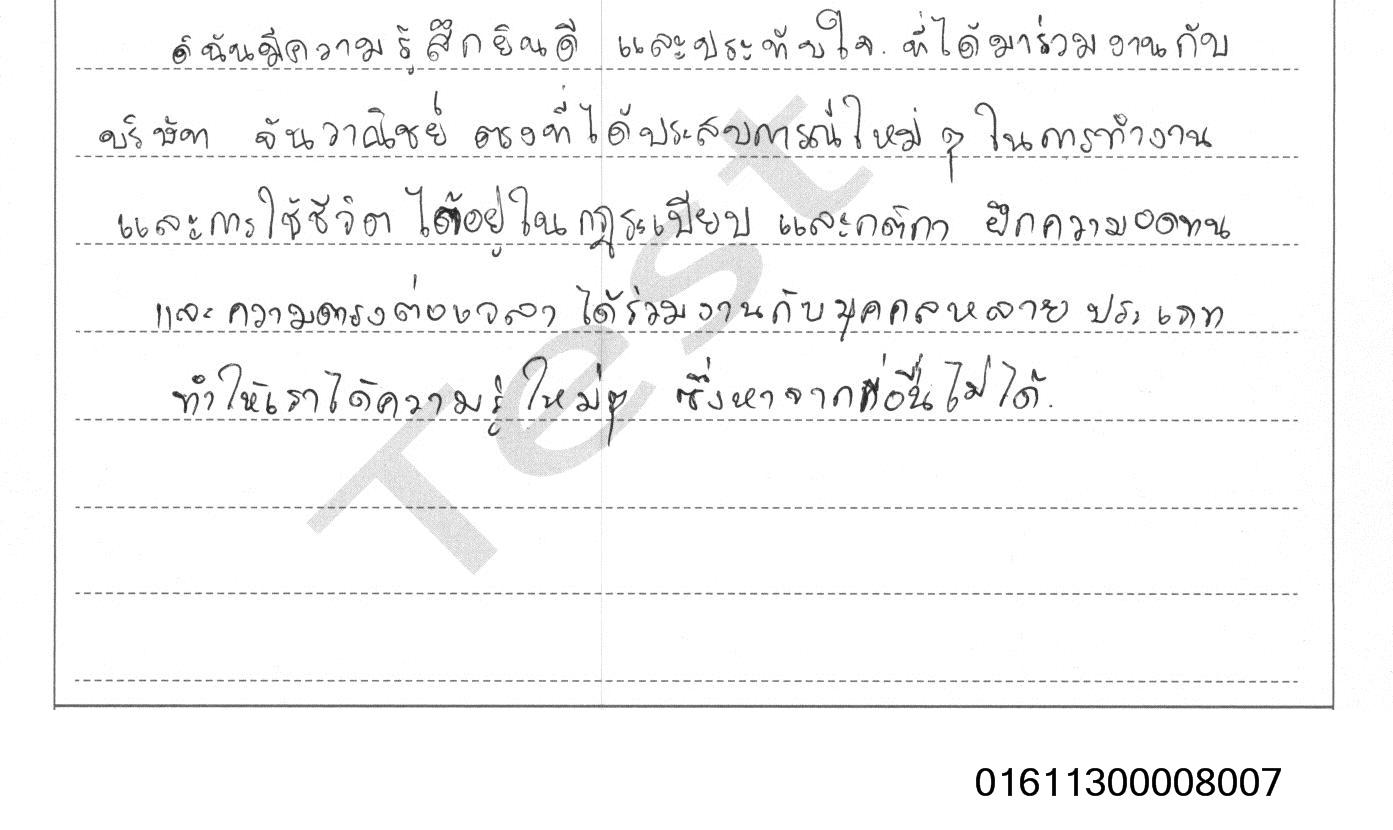 ดิฉันมีความรู้สึกยินดี และประทับใจ. ที่ได้มาร่วมงานกับ
บริษัท จันวาณิชย์ ตรงที่ได้ประสบการณ์ใหม่ ๆ ในการทำงาน
และการใช้ชีวิต ได้อยู่ในกฎระเบียบ และกติกา ฝึกความอดทน
และความตรงต่อเวลา ได้ร่วมงานกับบุคคลหลายประเภท
ทำให้เราได้ความรู้ใหม่ๆ ซึ่งหาจากที่อื่นไม่ได้.
Test
01611300008007